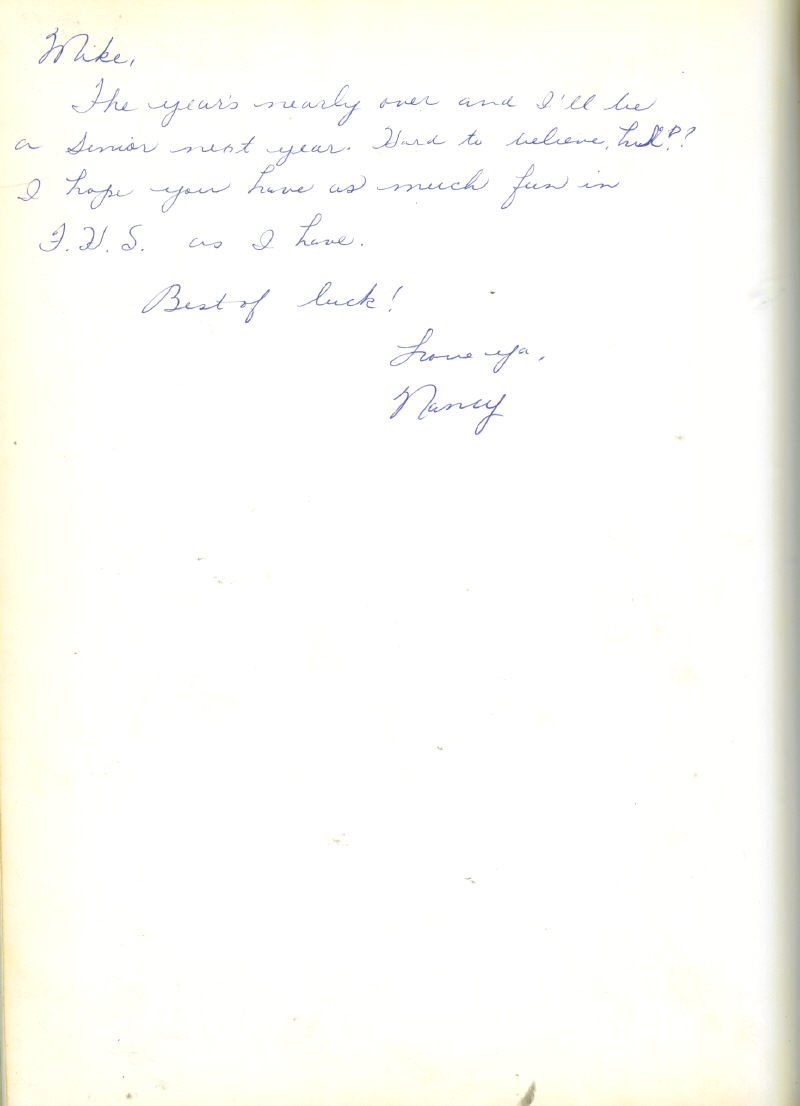 Mike,
The year's nearly over and I'll be
a Senior next year. Hard to believe, huh??
I hope you have as much fun in
F.H.S. as I have.
Best of luck!
Love ya,
Nancy